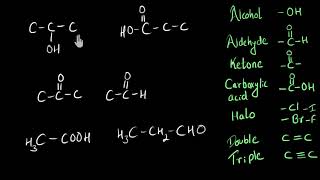 C-C-C
OH
O
HO-C-C-C
O
C-C-C
O
C-C-H
H₃C-COOH
H₃C-CH₂-CHO
Alcohol -OH
Aldehyde O
-C-H
Ketone O
-C-
Carboxylic acid O
-C-OH
Halo -Cl -I
-Br -F
Double C=C
Triple C≡C